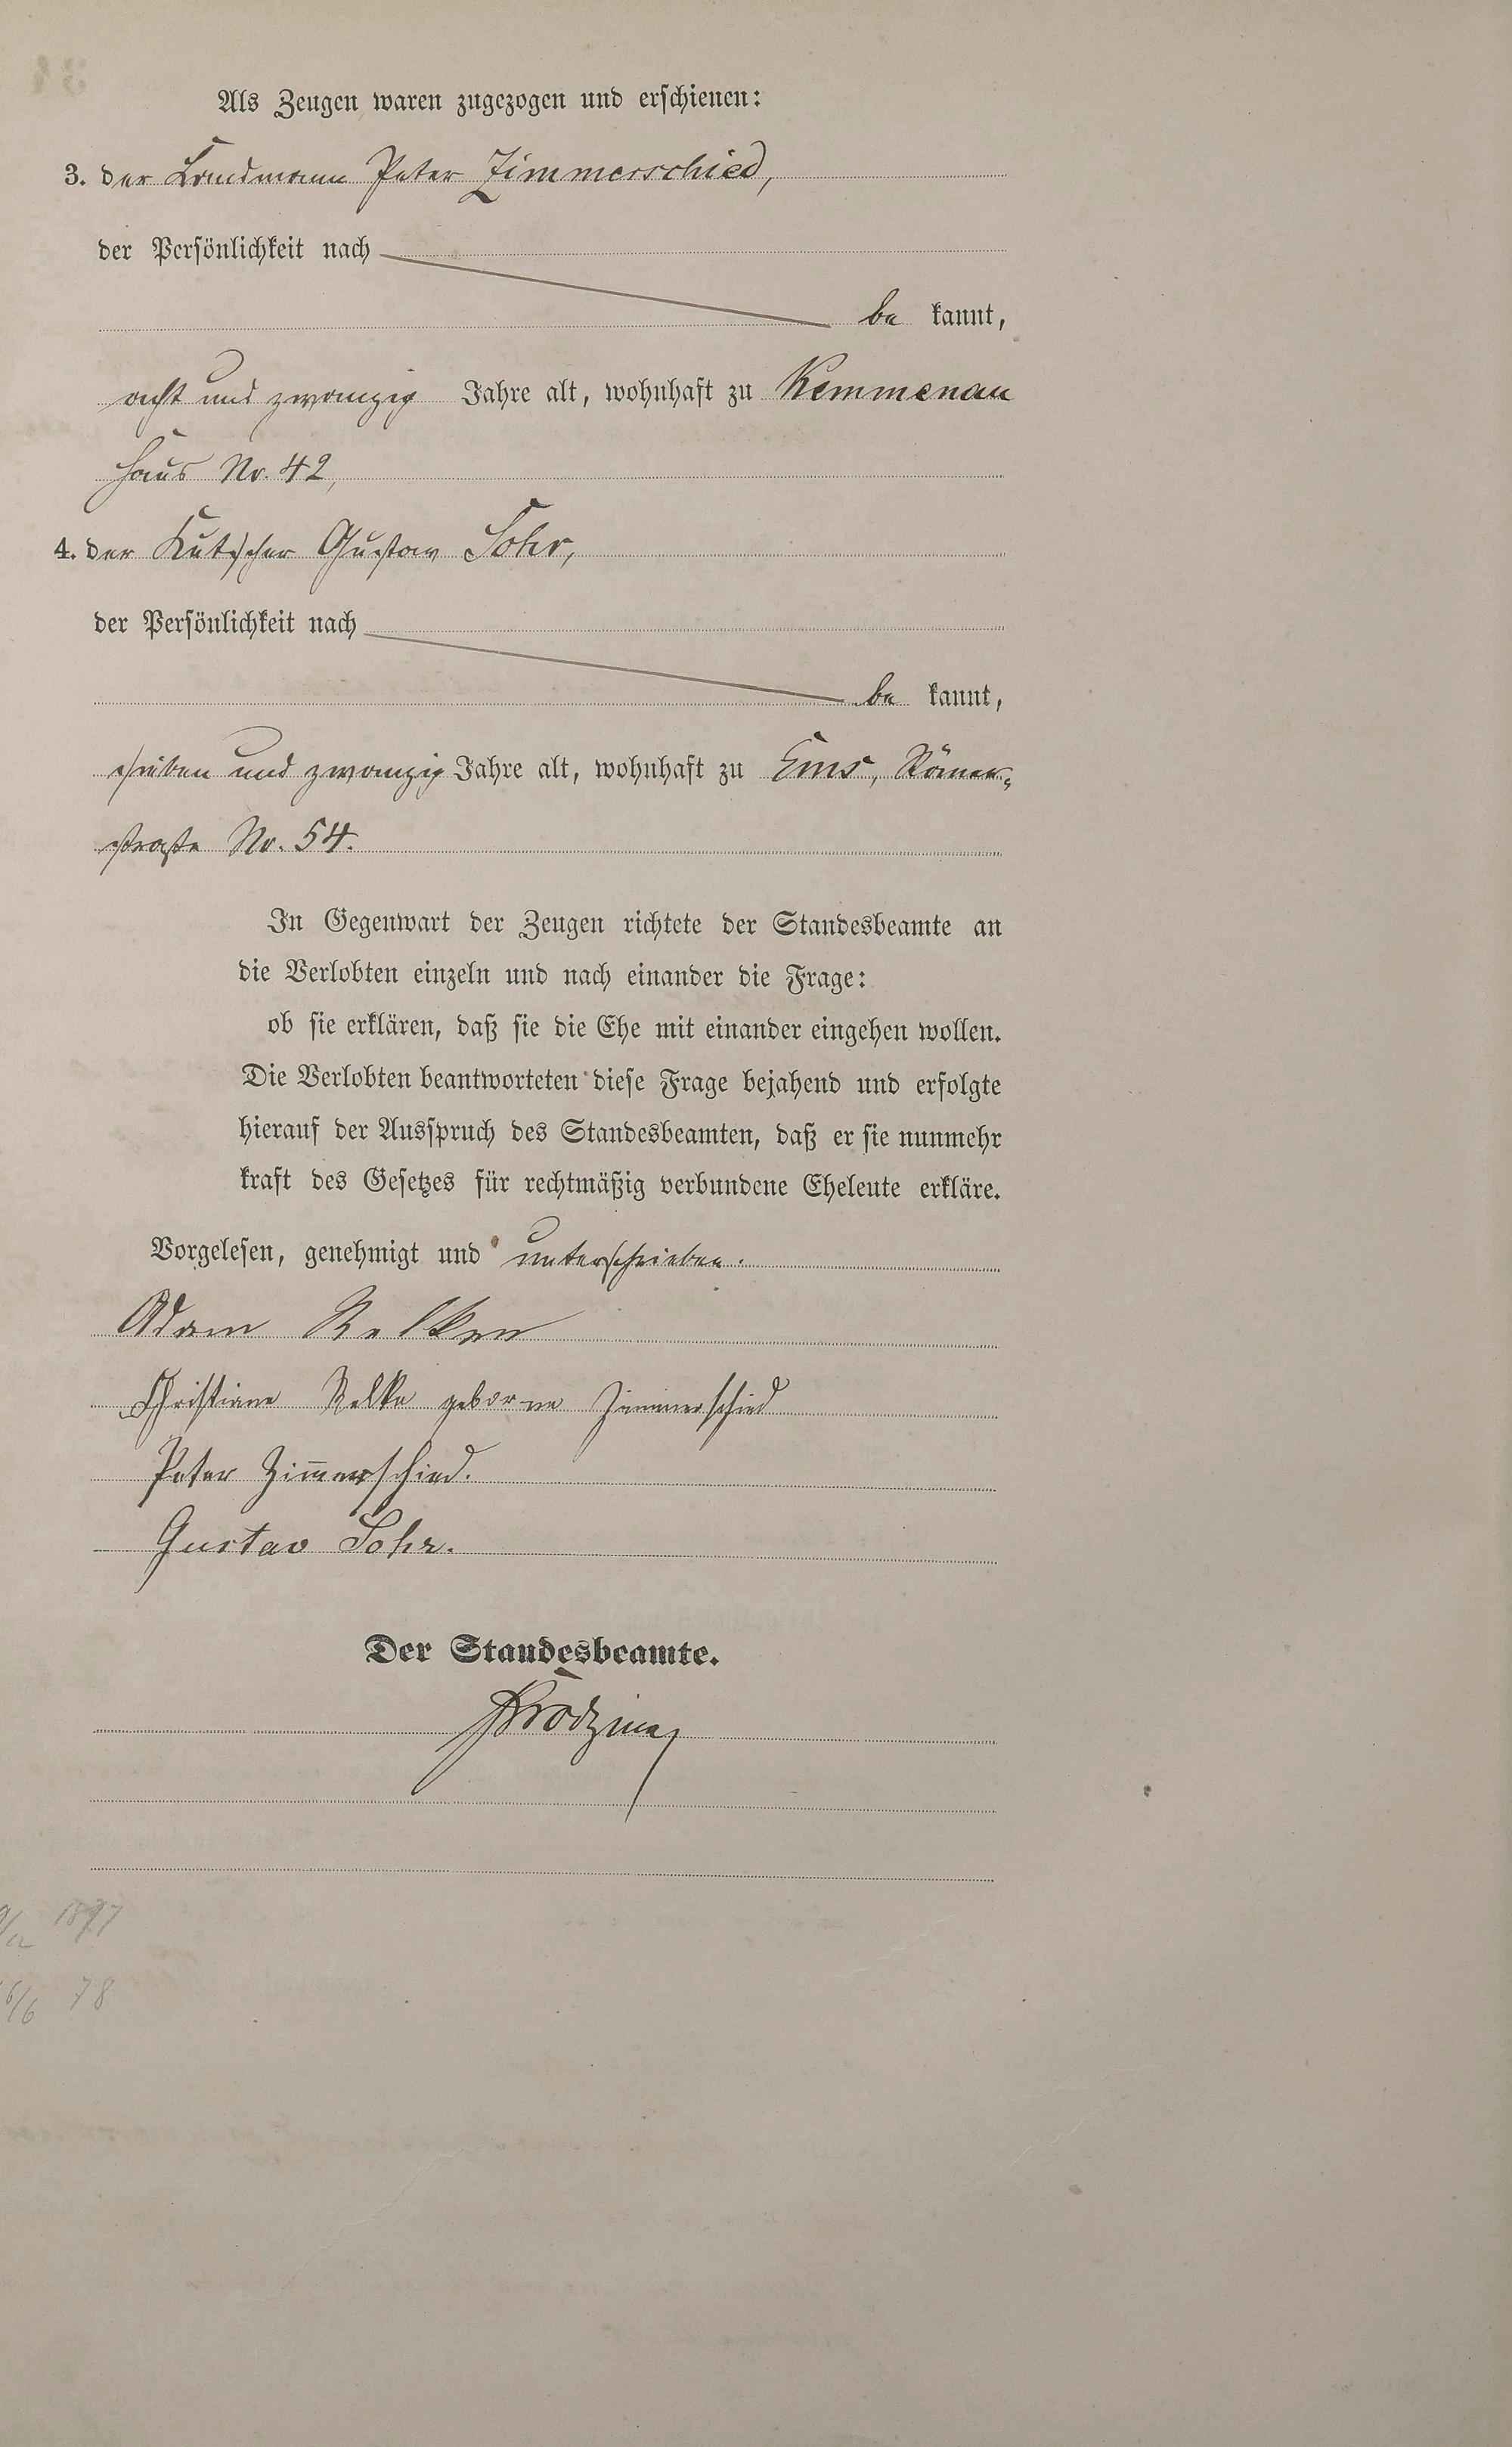 Als Zeugen waren zugezogen und erschienen:
3. der Landmann Peter Zimmerschied,
der Persönlichkeit nach
be kannt,
acht und zwanzig Jahre alt, wohnhaft zu Kemmenau
Haus Nr. 42,
4. der Kutscher Gustav Sohr,
der Persönlichkeit nach
be kannt,
sieben und zwanzig Jahre alt, wohnhaft zu Ems, Römer-
straße Nr. 54.
In Gegenwart der Zeugen richtete der Standesbeamte an
die Verlobten einzeln und nach einander die Frage:
ob sie erklären, daß sie die Ehe mit einander eingehen wollen.
Die Verlobten beantworteten diese Frage bejahend und erfolgte
hierauf der Ausspruch des Standesbeamten, daß er sie nunmehr
kraft des Gesetzes für rechtmäßig verbundene Eheleute erkläre.
Vorgelesen, genehmigt und unterschrieben.
Adam
Christiane geborne Zimmerschied
Peter Zim̅erschied.
Gustav Sohr.
Der Standesbeamte.
1897
6/6 78